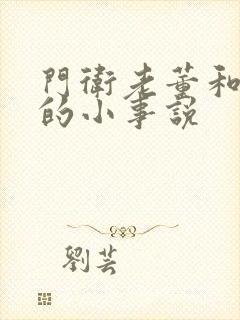 門衛老董和
的小事說
劉芸